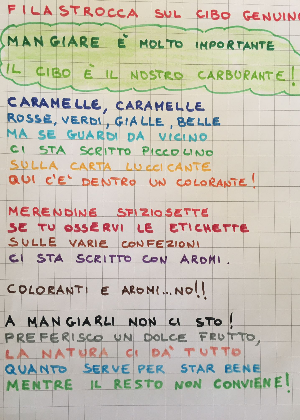 FILASTROCCA SUL CIBO GENUINO
MANGIARE È MOLTO IMPORTANTE
IL CIBO È IL NOSTRO CARBURANTE!
CARAMELLE, CARAMELLE
ROSSE, VERDI, GIALLE, BELLE
MA SE GUARDI DA VICINO
CI STA SCRITTO PICCOLINO
SULLA CARTA LUCCICANTE
QUI C'E' DENTRO UN COLORANTE!
MERENDINE SFIZIOSETTE
SE TU OSSERVI LE ETICHETTE
SULLE VARIE CONFEZIONI
CI STA SCRITTO CON AROMI.
COLORANTI E AROMI...NO!!
A MANGIARLI NON CI STO!
PREFERISCO UN DOLCE FRUTTO,
LA NATURA CI DA' TUTTO
QUANTO SERVE PER STAR BENE
MENTRE IL RESTO NON CONVIENE!